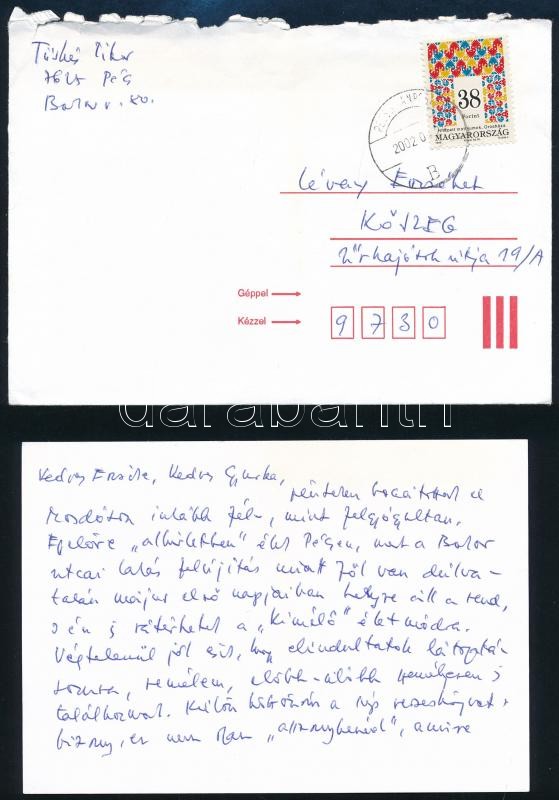 Tüskés Tibor
7625 Pécs
Bolor u. 
38
Forint
MAGYARORSZÁG
2002.0
B
Lévay Erzsébet
KŐSZEG
Űrhajósok útja 19/A
Géppel
Kézzel
9 7 3 0
darabanth
Kedves Erzsike, Kedves Gyurka,
pénteken bocsátottak el
Mosdóson inkább fél-, mint felgyógyultan.
Egyelőre "albérletben" élek Pécsen, mert a
utcai lakás felújítás miatt föl van dúlva -
talán május első napjaiban helyre áll a rend,
s én is rátérhetek a "kímélő" életmódra.
Végtelenül jól esik, hogy elindultatok
remélem, előbb-utóbb személyesen is
találkozunk. Külön köszönöm a szép
bizony, ez nem olyan "asszonybeszéd", amire